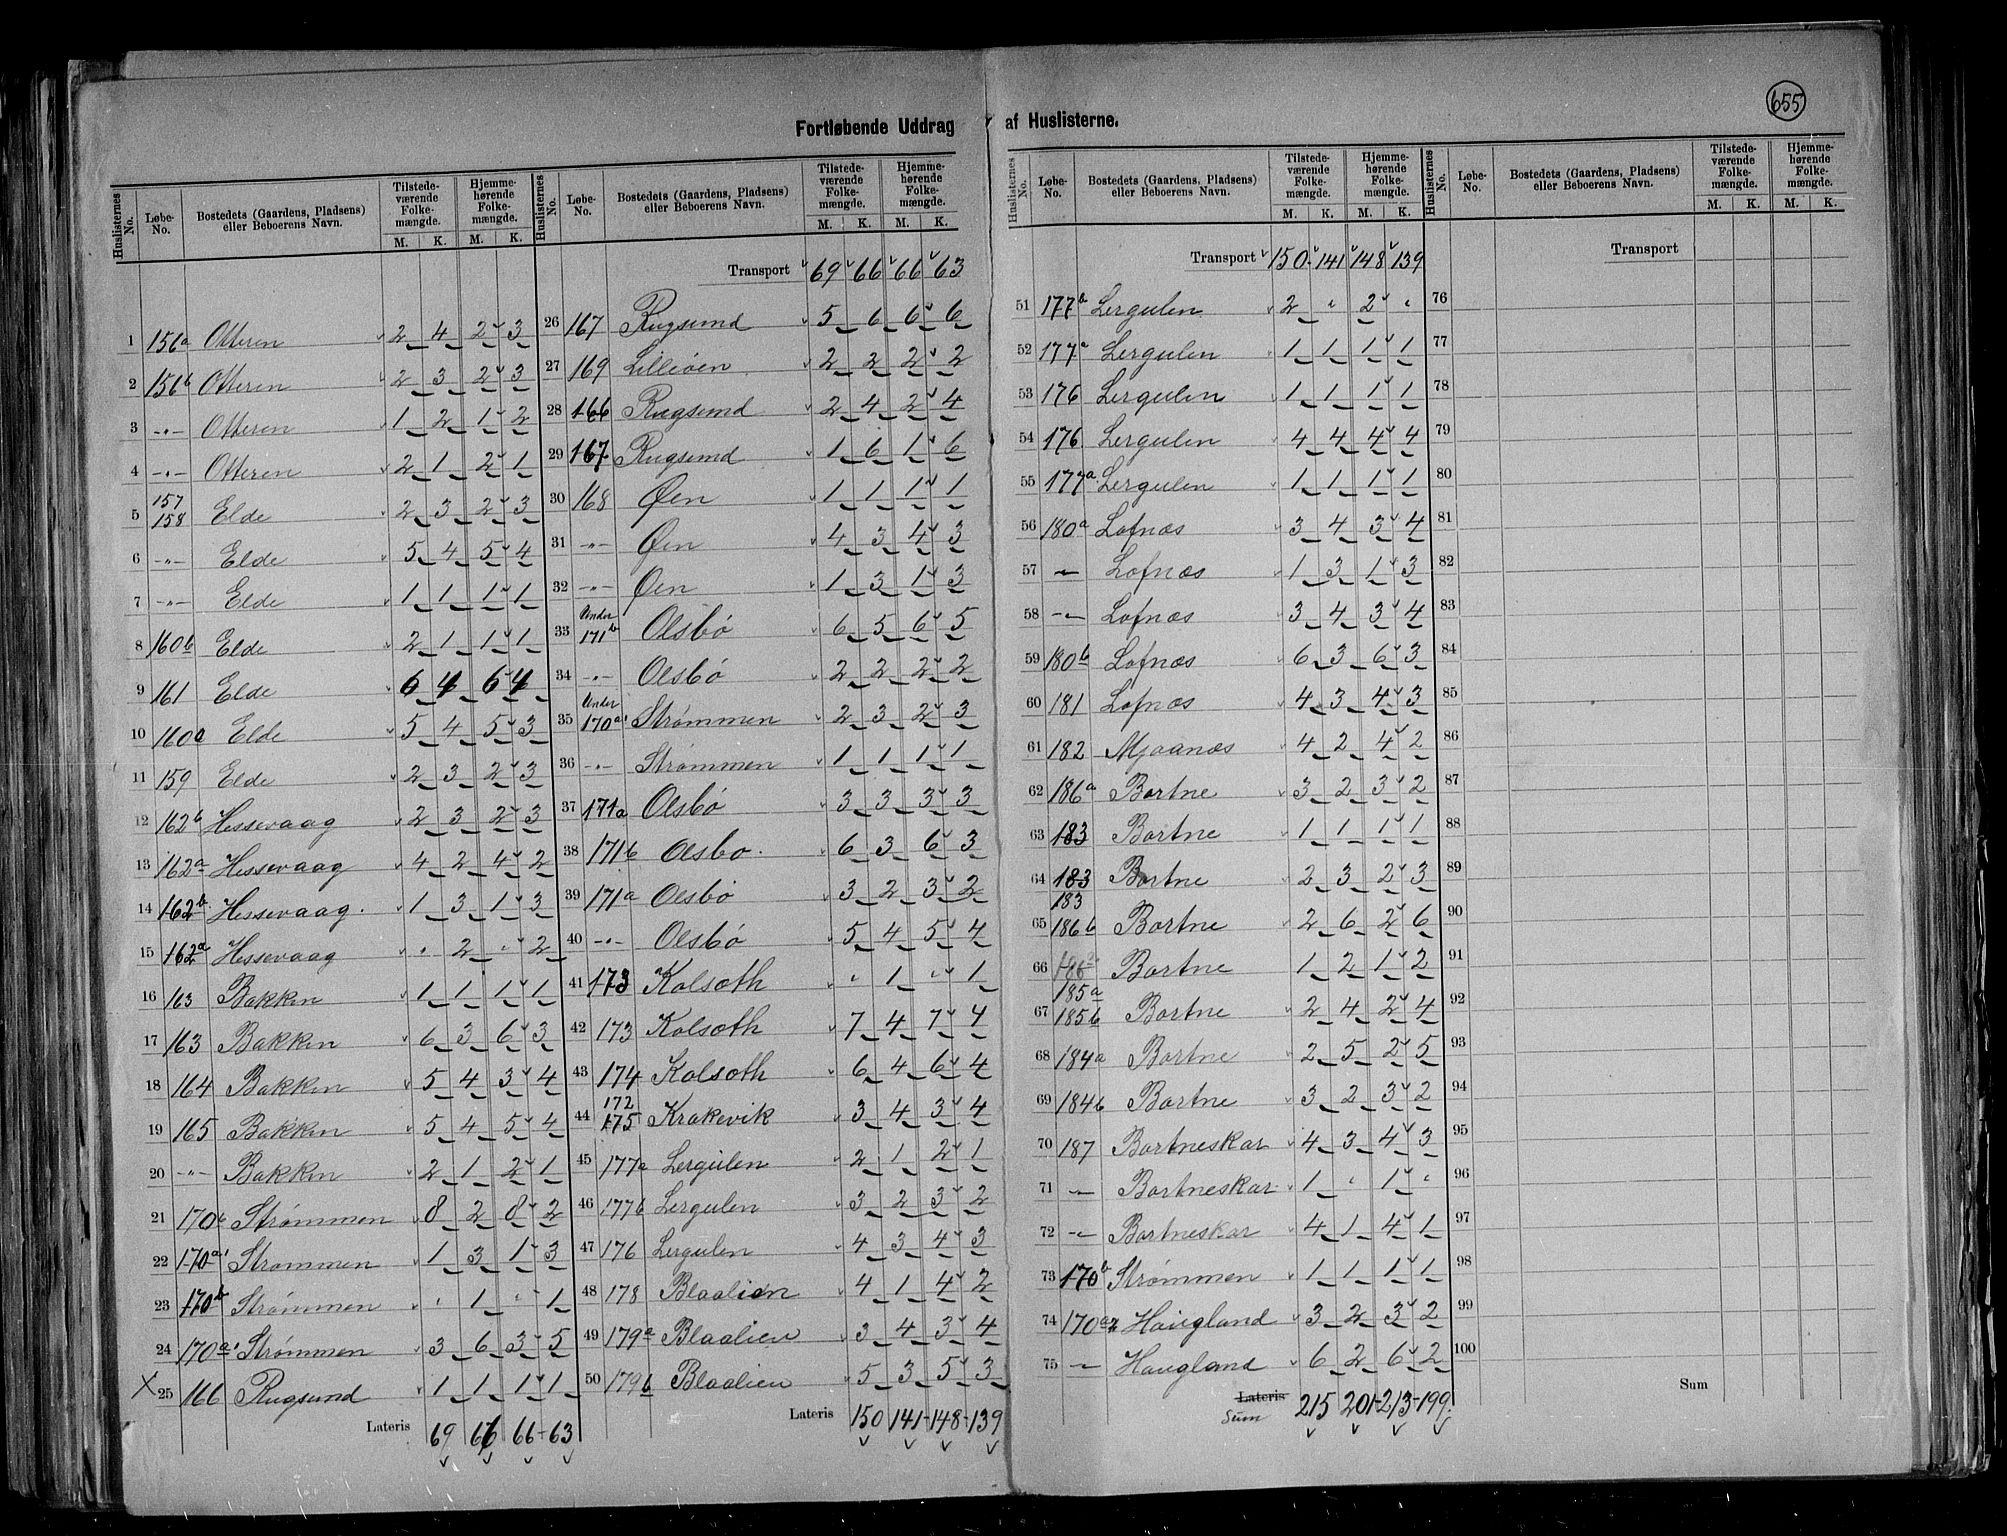 655
Fortløbende Uddrag af Huslisterne.
Huslisternes No. Løbe-No. Bostedets (Gaardens, Pladsens) eller Beboerens Navn. Tilstedeværende Folkemængde. M. K. Hjemmehørende Folkemængde. M. K.
1 156a Otteren 2 4 2 3
2 156b Otteren 2 3 2 3
3 -"- Otteren 1 2 1 2
4 -"- Otteren 2 1 2 1
5 157 158 Elde 2 3 2 3
6 -"- Elde 5 4 5 4
7 -"- Elde 1 1 1 1
8 160b Elde 2 1 1 1
9 161 Elde 6 4 6 4
10 160a Elde 5 4 5 3
11 159 Elde 2 3 2 3
12 162b Hessevaag 2 3 2 3
13 162a Hessevaag 4 2 4 2
14 162b Hessevaag. 1 3 1 3
15 162a Hessevaag " 2 " 2
16 163 Bakken 1 1 1 1
17 163 Bakken 6 3 6 3
18 164 Bakken 5 4 3 4
19 165 Bakken 5 4 5 4
20 -"- Bakken 2 1 2 1
21 170b Strømmen 8 2 8 2
22 170a' Strømmen 1 3 1 3
23 170b Strømmen " 1 " 1
24 170a' Strømmen 3 6 3 5
X 25 166 Rugsund 1 1 1 1
Lateris 69 66 66 63
Huslisternes No. Løbe-No. Bostedets (Gaardens, Pladsens) eller Beboerens Navn. Tilstedeværende Folkemængde. M. K. Hjemmehørende Folkemængde. M. K.
Transport 69 66 66 63
26 167 Rugsund 5 6 6 6
27 169 Lilleøen 2 2 2 2
28 166 Rugsund 2 4 2 4
29 167 Rugsund 1 6 1 6
30 168 Øen 1 1 1 1
31 -"- Øen 4 3 4 3
32 -"- Øen 1 3 1 3
33 Under 171b Olsbø 6 5 6 5
34 -"- Olsbø 2 2 2 2
35 Under 170a' Strømmen 2 3 2 3
36 -"- Strømmen 1 1 1 1
37 171a Olsbø 3 3 3 3
38 171b Olsbø. 6 3 6 3
39 171a Olsbø 3 2 3 2
40 -"- Olsbø 5 4 5 4
41 173 Kolsøth " 1 " 1
42 173 Kolsøth 7 4 7 4
43 174 Kolsøth 6 4 6 4
44 172 175 Krakevik 3 4 3 4
45 177a Lergulen 2 1 2 1
46 177b Lergulen 3 2 3 2
47 176 Lergulen 4 3 4 3
48 178 Blaalien 4 1 4 2
49 179a Blaalien 3 4 3 4
50 179b Blaalien 5 3 5 3
Lateris 150 141-148-139
Huslisternes No. Løbe-No. Bostedets (Gaardens, Pladsens) eller Beboerens Navn. Tilstedeværende Folkemængde. M. K. Hjemmehørende Folkemængde. M. K.
Transport 150 141 148 139
51 177b Lergulen 2 " 2 "
52 177a Lergulen 1 1 1 1
53 176 Lergulen 1 1 1 1
54 176 Lergulen 4 4 4 4
55 177a Lergulen 1 1 1 1
56 180a Lofnæs 3 4 3 4
57 -"- Lofnæs 1 3 1 3
58 -"- Lofnæs 3 4 3 4
59 180b Lofnæs 6 3 6 3
60 181 Lofnæs 4 3 4 3
61 182 Mjaanæs 4 2 4 2
62 186a Bortne 3 2 3 2
63 183 Bortne 1 1 1 1
64 183 Bortne 2 3 2 3
65 183 186b Bortne 2 6 2 6
66 186a Bortne 1 2 1 2
67 185a 185b Bortne 2 4 2 4
68 184a Bortne 2 5 2 5
69 184b Bortne 3 2 3 2
70 187 Bortneskar 4 3 4 3
71 -"- Bortneskar 1 " 1 "
72 -"- Bortneskar 4 1 4 1
73 170b Strømmen 1 1 1 1
74 170a2 Haugland 3 2 3 2
75 -"- Haugland 6 2 6 2
Lateris Sum 215 201-213-199.
Huslisternes No. Løbe-No. Bostedets (Gaardens, Pladsens) eller Beboerens Navn. Tilstedeværende Folkemængde. M. K. Hjemmehørende Folkemængde. M. K.
Transport
76
77
78
79
80
81
82
83
84
85
86
87
88
89
90
91
92
93
94
95
96
97
98
99
100
Sum